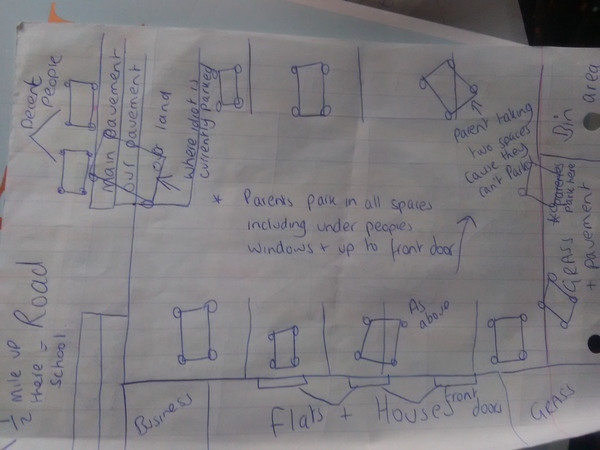 Decent
People
main pavement
our pavement
our land
where idiot is
currently parked
Parent taking
two spaces
cause they
can't Park!
Bin area
* Parents park in all spaces
including under peoples
windows + up to front door
* Parents
park here
GRASS
+ pavement
Road
1/2 mile up
Here = 
School
As
above
Business
Flats + Houses
front
doors
GRASS